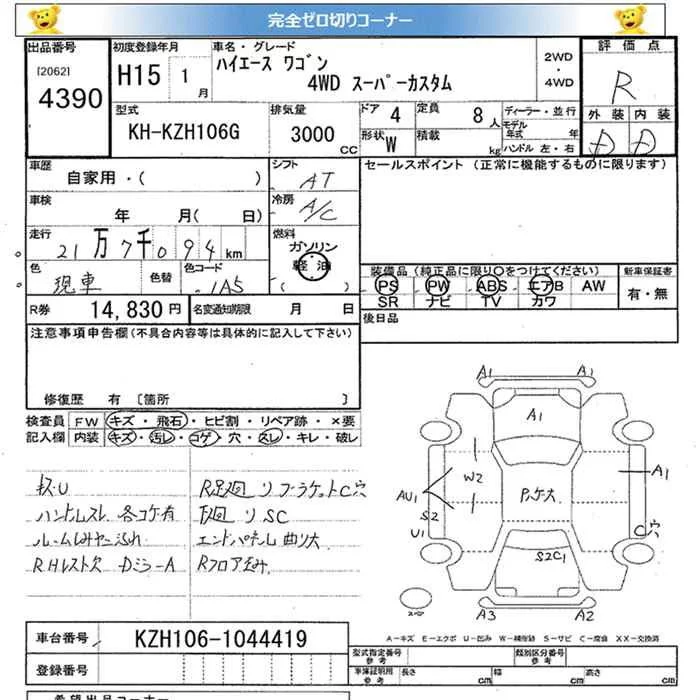 完全ゼロ切りコーナー
出品番号 初度登録年月 車名・グレード 2WD ・ 4WD 評価点
[2062] 4390 H15 1月 ハイエース ワゴン 4WD スーパーカスタム R
型式 排気量 ドア 4 定員 8人 ディーラー・並行 外装 内装
KH-KZH106G 3000 CC 形状 W 積載 kg モデル年式 年 ハンドル 左・右 D D
車歴 自家用・( ) シフト AT セールスポイント (正常に機能するものに限ります)
車検 年 月( 日) 冷房 A/C
走行 21万7千094km 燃料 ガソリン 軽油 ( )
色 現車 色替 色コード 1A5 装備品 (純正品に限り○をつけてください) 新車保証書
PS PW ABS エアB AW 有・無
SR ナビ TV カワ
R券 14,830円 名変通知期限 月 日 後日品
注意事項申告欄(不具合内容等は具体的に記入して下さい)
修復歴 有 [箇所 ]
検査員 FW キズ・飛石・ヒビ割・リペア跡・×要
記入欄 内装 キズ・汚レ・コゲ・穴・スレ・キレ・破レ
ハンドルスレ 各コゲ有
RHレスト欠 DミラーA
R足廻リ フラケットC穴
下廻リ SC
エンドパネル 曲リ大
Rフロア歪み
A1 A1
A1
W2 A1
AU1 Pンケ大
S2
U1 C穴
S2C1
A3 A2
A-キズ E-エクボ U-凹み W-補修跡 S-サビ C-腐食 XX-交換済
車台番号 KZH106-1044419
型式指定番号 参考 類別区分番号 参考
登録番号 車庫証明用 参考 長さ cm 幅 cm 高さ cm
希望出品コーナー